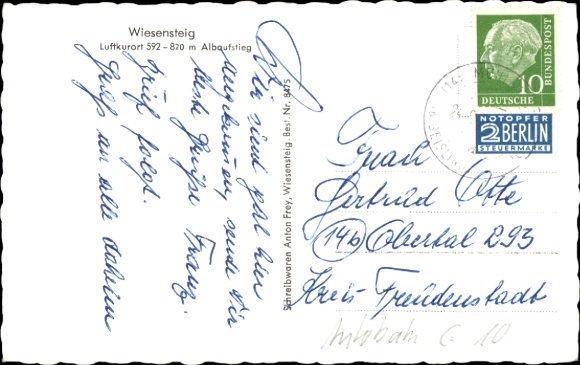 Wiesensteig
Luftkurort 592-820 m Albaufstieg
Wir sind gut hier
angekommen, sende Dir
beste Grüße Franz.
Brief folgt.
Gruß an alle daheim
Schreibwaren Anton Frey, Wiesensteig. Best. Nr. 8475
10
DEUTSCHE
BUNDESPOST
NOTOPFER
2 BERLIN
STEUERMARKE
Frau
Gertrud Otte
(14b) Obertal 293
Kreis Freudenstadt
10